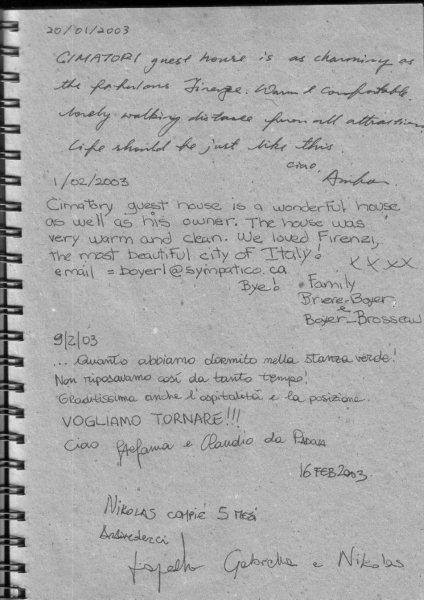 20/01/2003
CIMATORI guest house is as charming as
the fabulous Firenze. Warm & comfortable.
lovely walking distance from all attractions
Life should be just like this.
ciao,
1/02/2003
Cimatory guest house is a wonderful house
as well as his owner. The house was
very warm and clean. We loved Firenzi,
the most beautiful city of Italy!
email = boyer1@sympatico.ca
XXXX
Bye! Family
Briere-Boyer
e
Boyer-Brosseau
9/2/03
... Quanto abbiamo dormito nella stanza verde!
Non riposavamo così da tanto tempo!
Graditissima anche l'ospitalità e la posizione.
VOGLIAMO TORNARE!!!
Ciao Stefania e Claudio da Padova
16 FEB 2003
NIKOLAS COMPIE 5 MESI
Arrivederci
Gabriella e Nikolas